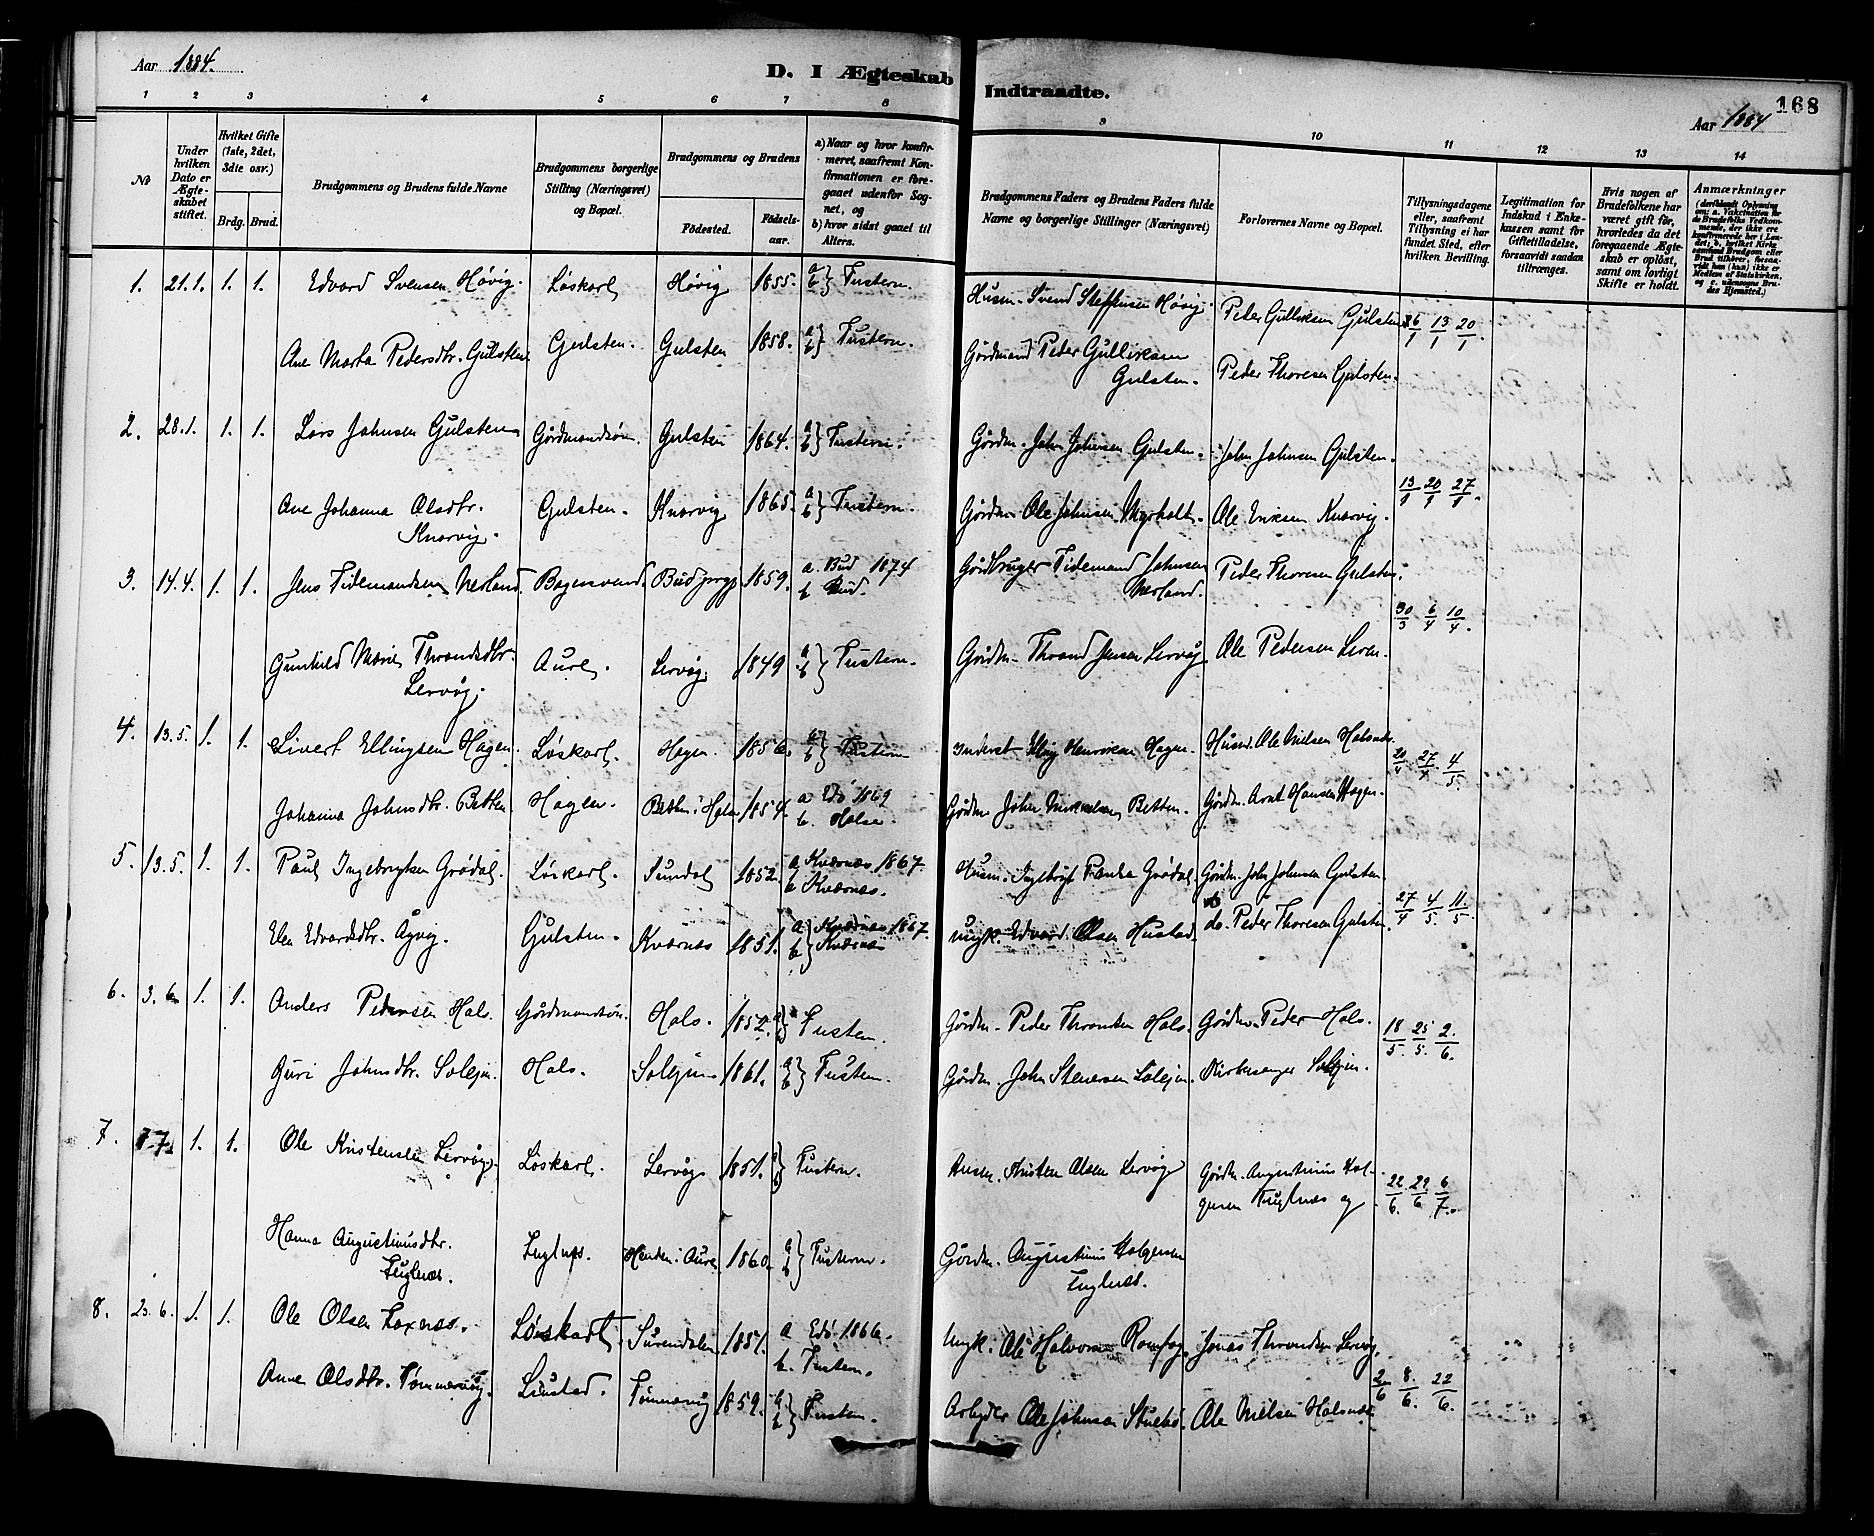 Aar 1884.
D. I Ægteskab Indtraadte.
Aar 1884
168
1 2 3 4 5 6 7 8 9 10 11 12 13 14
№
Under hvilken Dato er Ægteskabet stiftet.
Hvilket Gifte (1ste, 2det, 3die osv.)
Brdg. Brud.
Brudgommens og Brudens fulde Navne
Brudgommens borgerlige Stilling (Næringsvei) og Bopæl.
Brudgommens og Brudens
Fødested. Fødselsaar.
a) Naar og hvor konfirmeret, saafremt Konfirmationen er foregaaet udenfor Sognet, og
b) hvor sidst gaaet til Alters.
Brudgommens Faders og Brudens Faders fulde Navne og borgerlige Stillinger (Næringsvei)
Forlovernes Navne og Bopæl.
Tillysningsdagene eller, saafremt Tillysning ei har fundet Sted, efter hvilken Bevilling.
Legitimation for Indskud i Enkekassen samt for Giftetilladelse, forsaavidt saadan tiltrænges.
Hvis nogen af Brudefolkene har været gift før, hvorledes da det foregaaende Ægteskab er opløst, samt om lovligt Skifte er holdt.
Anmærkninger
1. 21.1. 1. 1. Edvard Svensen Høvig. Løskarl Høvig 1855. a b } Tustern. Husm. Svend Steffensen Høvig. Peder Gulliksen Gulsten 6/1 13/1 20/1.
Ane Marta Pedersdtr. Gulsten Gulsten. Gulsten 1858. a b } Tustern. Gårdmand Peder Gulliksen Gulsten. Peder Thoresen Gulsten.
2. 28.1. 1. 1. Lars Johnsen Gulsten Gårdmandsøn. Gulsten 1864. a b } Tustern. Gårdm. John Johnsen Gulsten. John Johnsen Gulsten. 13/1 20/1 27/1.
Ane Johanna Olsdtr. Knarvig. Gulsten. Knarvig 1865. a b } Tustern. Gårdm. Ole Johnsen Myrholt. Ole Eriksen Knarvig.
3. 14.4. 1. 1. Jens Tidemandsen Nerland. Bagersvend Bud prgj 1859. a. Bud 1874 b Bud. Gårdbruger Tidemand Johnsen Nerland. Peder Thoresen Gulsten. 30/3 6/4 10/4.
Gunhild Marie Throndsdtr. Lervåg. Aure. Lervåg. 1849 a b } Tustern. Gårdm. Thrond Jensen Lervåg. Ole Pedersen
4. 13.5. 1. 1. Sivert Ellingsen Hagen. Løskarl. Hagen. 1856. a b } Tustern Inderst Elling Henriksen Hagen. Husm. Ole Nielsen Halsnæs. 20/4 27/4 4/5.
Johanna Johnsdtr. Betten. Hagen. Betten i Halse 1854. a Edø 1869 b. Halse. Gårdm. John Mikkelsen Betten. Gårdm. Arnt Hansen Hagen.
5. 13.5. 1. 1. Paul Ingebrigtsen Grødal. Løskarl. Sundal 1852. a Kværnæs 1867 b Kværnæs. Husm. Ingebrigt Grødal. Gårdm. John Johnsen Gulsten 27/4 4/5 11/5.
Elen Edvardsdtr. Ågvig. Gulsten. Kværnæs 1851. a b } Kværnæs 1867. Kværnæs Ungk. Edvard Olsen Hustad. do. Peder Thoresen Gulsten.
6. 3.6. 1. 1. Anders Pedersen Hals. Gårdmandsøn. Hals. 1852. a b } Tustern. Gårdm. Peder Hals. Gårdm. Peder Hals. 18/5. 25/5. 2./6.
Guri Johnsdtr. Solejm. Hals. Solejm 1861. a b } Tustern. Gårdm. John Stenersen Solejm. Kirkesanger Solejm.
7. 7.7. 1. 1. Ole Kristensen Lervåg. Løskarl. Lervåg 1851. a b } Tustern. Husm. Kristen Olsen Lervåg Gårdm. Augustinus Holgersen Fuglnæs og 22/6. 29/6 6/7.
Hanna Augustinusdtr. Fuglnæs. Fuglnæs. i Aure 1860. a b } Tustern. Gårdm. Augustinus Holgersen Fuglnæs.
8. 23.6. 1. 1. Ole Olsen Laxnæs. Løskarl. Surendalen 1851. a Edø. 1866. b. Tustern. Ungk. Ole Halvorsen Jonas Throndsen Lervåg. 2/6 8./6. 22/6.
Anne Olsdtr. Tømmervåg. Tømmervåg 1859. a b } Tustern. Arbejder Ole Johnsen Ole Nielsen Halsnæs